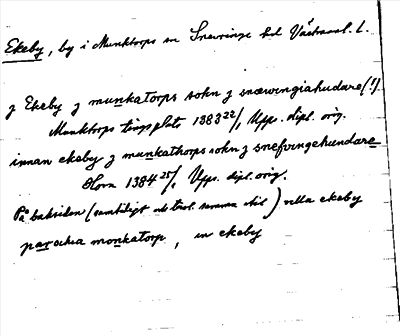 Ekeby, by i Munktorps sn Snevringe hd Västmanl. L.
j Ekeby j munkatorps sokn j snæwingiahudare (!)
Munktorps tingsplats 1383 22/1 Upps. dipl. orig.
innan ekeby j munkathorps sokn j snefvingehundare
Hova 1384 25/1 Upps. dipl. orig.
På baksidan (samtidigt trol. samma stil) villa ekeby
parochia monkatorp, in ekeby